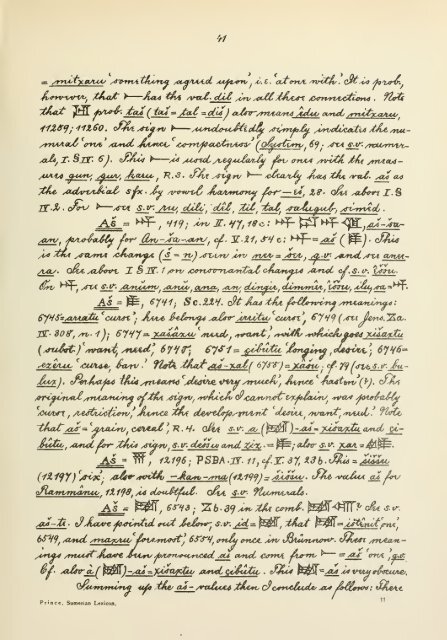 41
= mitxaru 'something agreed upon', i.e. 'at one with'. It is prob.,
however, that 𒀸 has the val. dil in all these connections. Note
that prob. taš (taš = tal = diš) also means îdu and mitxaru,
11259; 11260. The sign 𒀸 undoubtedly simply indicates the nu-
meral 'one' and hence 'compactness' (System, 69; see s.v. numer-
als, I. § IV. 6). This 𒀸 is used regularly for one with the meas-
ures gun, gur, karu, R.S. The sign 𒀸 clearly has the val. aš as
the adverbial sfx. by vowel harmony for —eš, 28. See above I. §
IV. 2. For 𒀸 see s.v. ru, dili, dil, til, tal, salugub, simed.
Aš = 𒀭, 419; in II. 47, 18 c: aš-ša-
an, probably for An-ša-an, cf. V. 21, 54 c: 𒀭 = aš. This
is the same change (š = n) seen in ner = šer, q.v. and see aner-
ra. See above I § IV. 1 on consonantal changes and cf. s.v. îšši.
On 𒀭, see s.v. aniem, anu, ana, an, dingir, dimmir, îššu, ilu, sa = 𒀭.
Aš = 𒀾, 6741; Sc. 224. It has the following meanings:
6743 = arratu 'curse'; here belongs also irritu 'curse', 6749 (see Jens. Za.
IV. 308, n. 1); 6747 = xašâxu 'need, want', with which goes xišaxtu
(subst.) 'want, need', 6748; 6751 = çibûtu 'longing, desire'; 6746 =
ezêru 'curse, ban'. Note that aš-xal (6758) = xâšu, cf. 79 (see s.v. bu-
lux). Perhaps this means 'desire very much', hence 'hasten' (?). The
original meaning of the sign, which I cannot explain, was probably
'curse, restriction', hence the development 'desire, want, need'. Note
that aš = 'grain, cereal', R. 4. See s.v. a-aš = xišaxtu and çi-
bûtu, and for this sign, s.v. dêšu and ziz.; also s.v. xar =
Aš = 𒐋, 12196; PSBA. IV. 11, cf. V. 37, 23 b. This = šiššu
(12197) 'six'; also with —kan-ma (12199) = šiššu. The value aš for
Rammânu, 12198, is doubtful. See s.v. Numerals.
Aš = 𒀉, 6543; Zb. 39 in the comb. See s.v.
aš-te. I have pointed out below, s.v. id = 𒀉, that 𒀉 = ištênit 'one',
6549, and maxru 'foremost', 6554, only once in Brünnow. These mean-
ings must have been pronounced aš and come from 𒀸 = aš 'one', q.v.
Cf. also a-aš = xišaxtu and çibûtu. This 𒀉 = aš is very obscure.
Summing up the aš-values then I conclude as follows: There
Prince, Sumerian Lexicon. 11